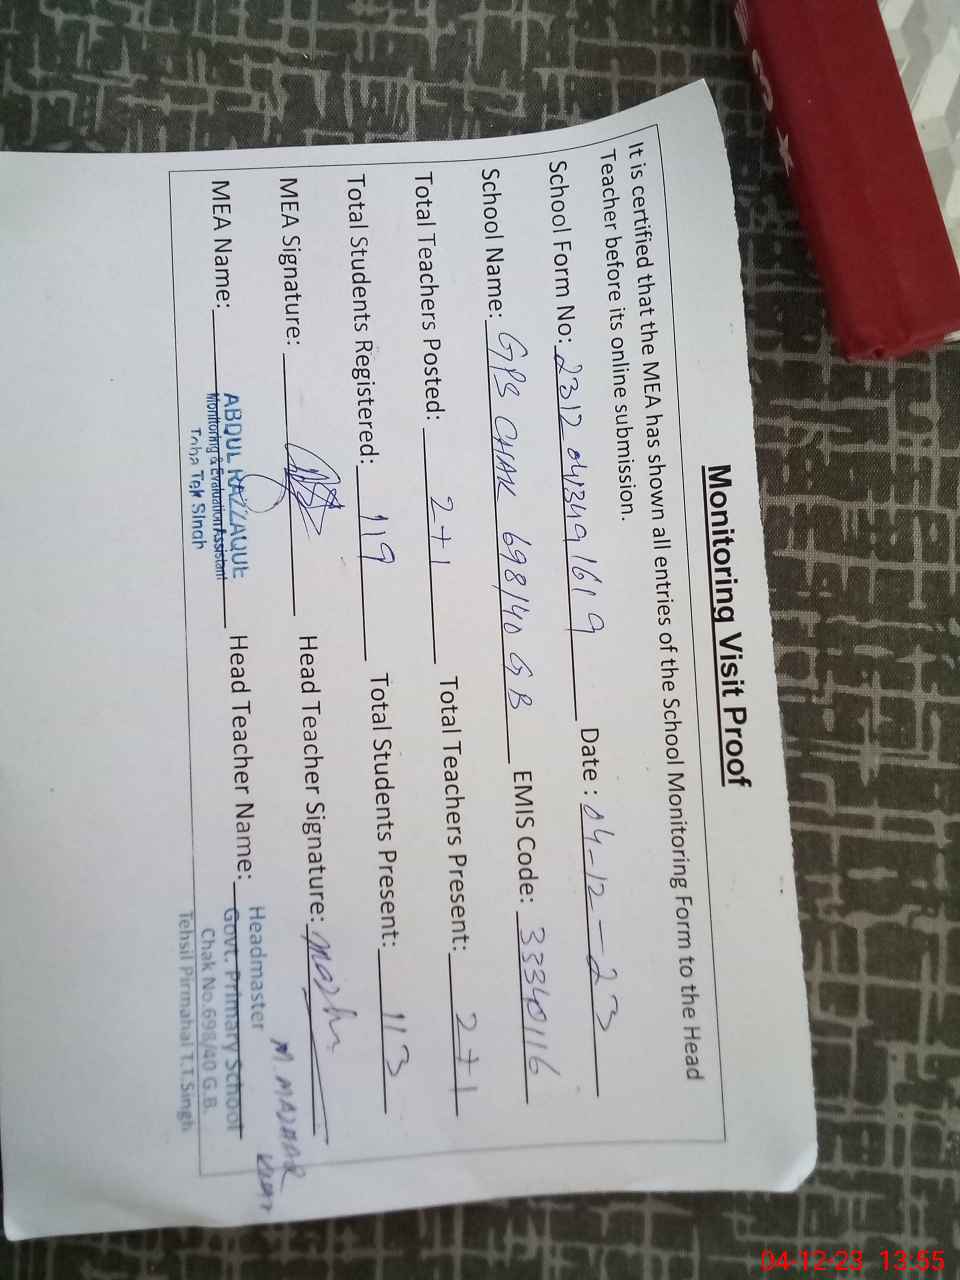 Monitoring Visit Proof
It is certified that the MEA has shown all entries of the School Monitoring Form to the Head
Teacher before its online submission.
School Form No: 2312 041349 1619 Date : 04-12-23
School Name: GPS CHAK 698/40 GB EMIS Code: 33340116
Total Teachers Posted: 2+1 Total Teachers Present: 2+1
Total Students Registered: 119 Total Students Present: 113
MEA Signature: Head Teacher Signature:
MEA Name: ABDUL RAZZAQUE Head Teacher Name: M. MAZHAR
Monitoring & Evaluation Assistant
Toba Tek Singh
Headmaster
Govt. Primary School
Chak No.698/40 G.B.
Tehsil Pirmahal T.T.Singh
04-12-23 13:55